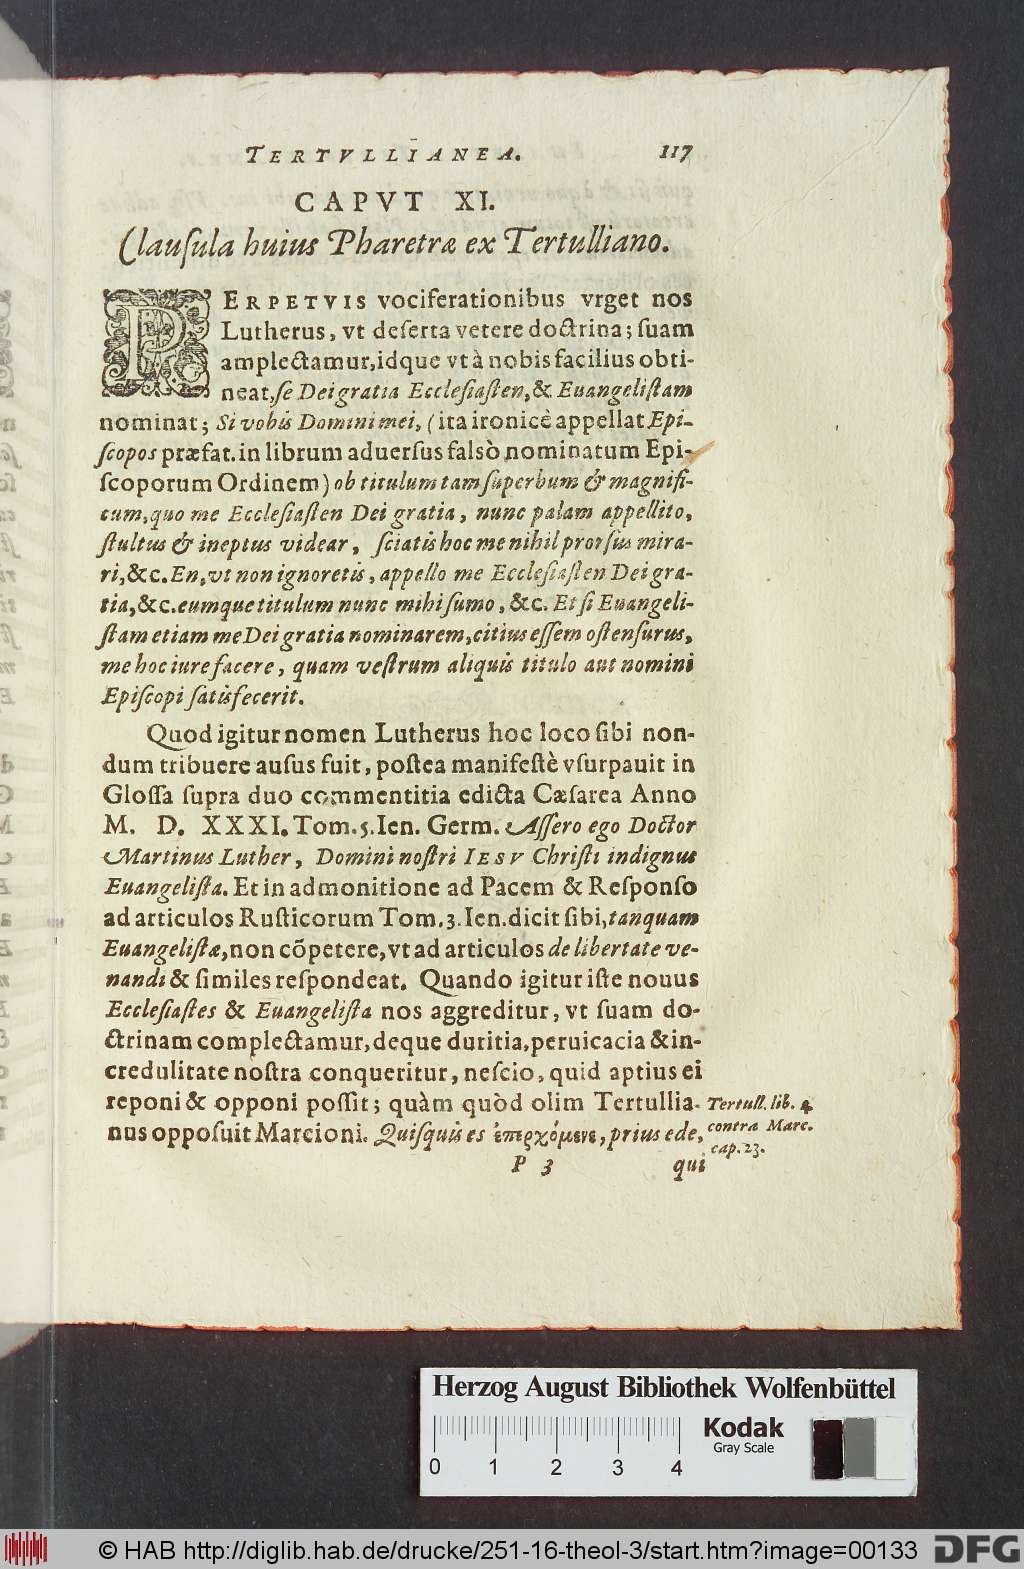 TERTVLLIANEA. 117
CAPVT XI.
Clauſula huius Pharetræ ex Tertulliano.
PERPETVIS vociferationibus vrget nos
Lutherus, vt deſerta vetere doctrina; ſuam
amplectamur, idque vt à nobis facilius obti-
neat, ſe Dei gratia Eccleſiaſten, & Euangeliſtam
nominat; Si vobis Domini mei, (ita ironicè appellat Epi-
ſcopos præfat. in librum aduerſus falsò nominatum Epi-
ſcoporum Ordinem) ob titulum tam ſuperbum & magnifi-
cum, quo me Eccleſiaſten Dei gratia, nunc palam appellito,
ſtultus & ineptus videar, ſciatis hoc me nihil prorſus mira-
ri, &c. En, vt non ignoretis, appello me Eccleſiaſten Dei gra-
tia, &c. eumque titulum nunc mihi ſumo, &c. Et ſi Euangeli-
ſtam etiam me Dei gratia nominarem, citius eſſem oſtenſurus,
me hoc iure facere, quam veſtrum aliquis titulo aut nomini
Epiſcopi ſatisfecerit.
Quod igitur nomen Lutherus hoc loco ſibi non-
dum tribuere auſus fuit, poſtea manifeſtè vſurpauit in
Gloſſa ſupra duo commentitia edicta Cæſarea Anno
M. D. XXXI. Tom. 5. Ien. Germ. Aſſero ego Doctor
Martinus Luther, Domini noſtri IESV Chriſti indignus
Euangeliſta. Et in admonitione ad Pacem & Reſponſo
ad articulos Ruſticorum Tom. 3. Ien. dicit ſibi, tanquam
Euangeliſtæ, non cõpetere, vt ad articulos de libertate ve-
nandi & ſimiles reſpondeat. Quando igitur iſte nouus
Eccleſiaſtes & Euangeliſta nos aggreditur, vt ſuam do-
ctrinam complectamur, deque duritia, peruicacia & in-
credulitate noſtra conqueritur, neſcio, quid aptius ei
reponi & opponi poſſit; quàm quòd olim Tertullia-
nus oppoſuit Marcioni. Quiſquis es ἐπερχόμενε, prius ede,
Tertull. lib. 4
contra Marc.
cap. 23.
P 3 qui
Herzog August Bibliothek Wolfenbüttel
Kodak
Gray Scale
0 1 2 3 4
© HAB http://diglib.hab.de/drucke/251-16-theol-3/start.htm?image=00133
DFG